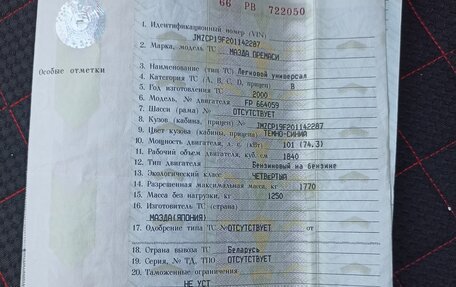 66 РВ 722050
1. Идентификационный номер (VIN)
JMZCP19F201142287
2. Марка, модель ТС МАЗДА ПРЕМАСИ
Особые отметки
3. Наименование (тип ТС) Легковой универсал
4. Категория ТС (A, B, C, D, прицеп) B
5. Год изготовления ТС 2000
6. Модель, № двигателя FP 664059
7. Шасси (рама) № ОТСУТСТВУЕТ
8. Кузов (кабина, прицеп) № JMZCP19F201142287
9. Цвет кузова (кабины, прицепа) ТЕМНО-СИНИЙ
10. Мощность двигателя, л. с. (кВт) 101 (74.3)
11. Рабочий объем двигателя, куб. см 1840
12. Тип двигателя Бензиновый на бензине
13. Экологический класс ЧЕТВЕРТЫЙ
14. Разрешенная максимальная масса, кг 1770
15. Масса без нагрузки, кг 1250
16. Изготовитель ТС (страна)
МАЗДА(ЯПОНИЯ)
17. Одобрение типа ТС № ОТСУТСТВУЕТ от
18. Страна вывоза ТС Беларусь
19. Серия, № ТД, ТПО ОТСУТСТВУЕТ
20. Таможенные ограничения
НЕ УСТ